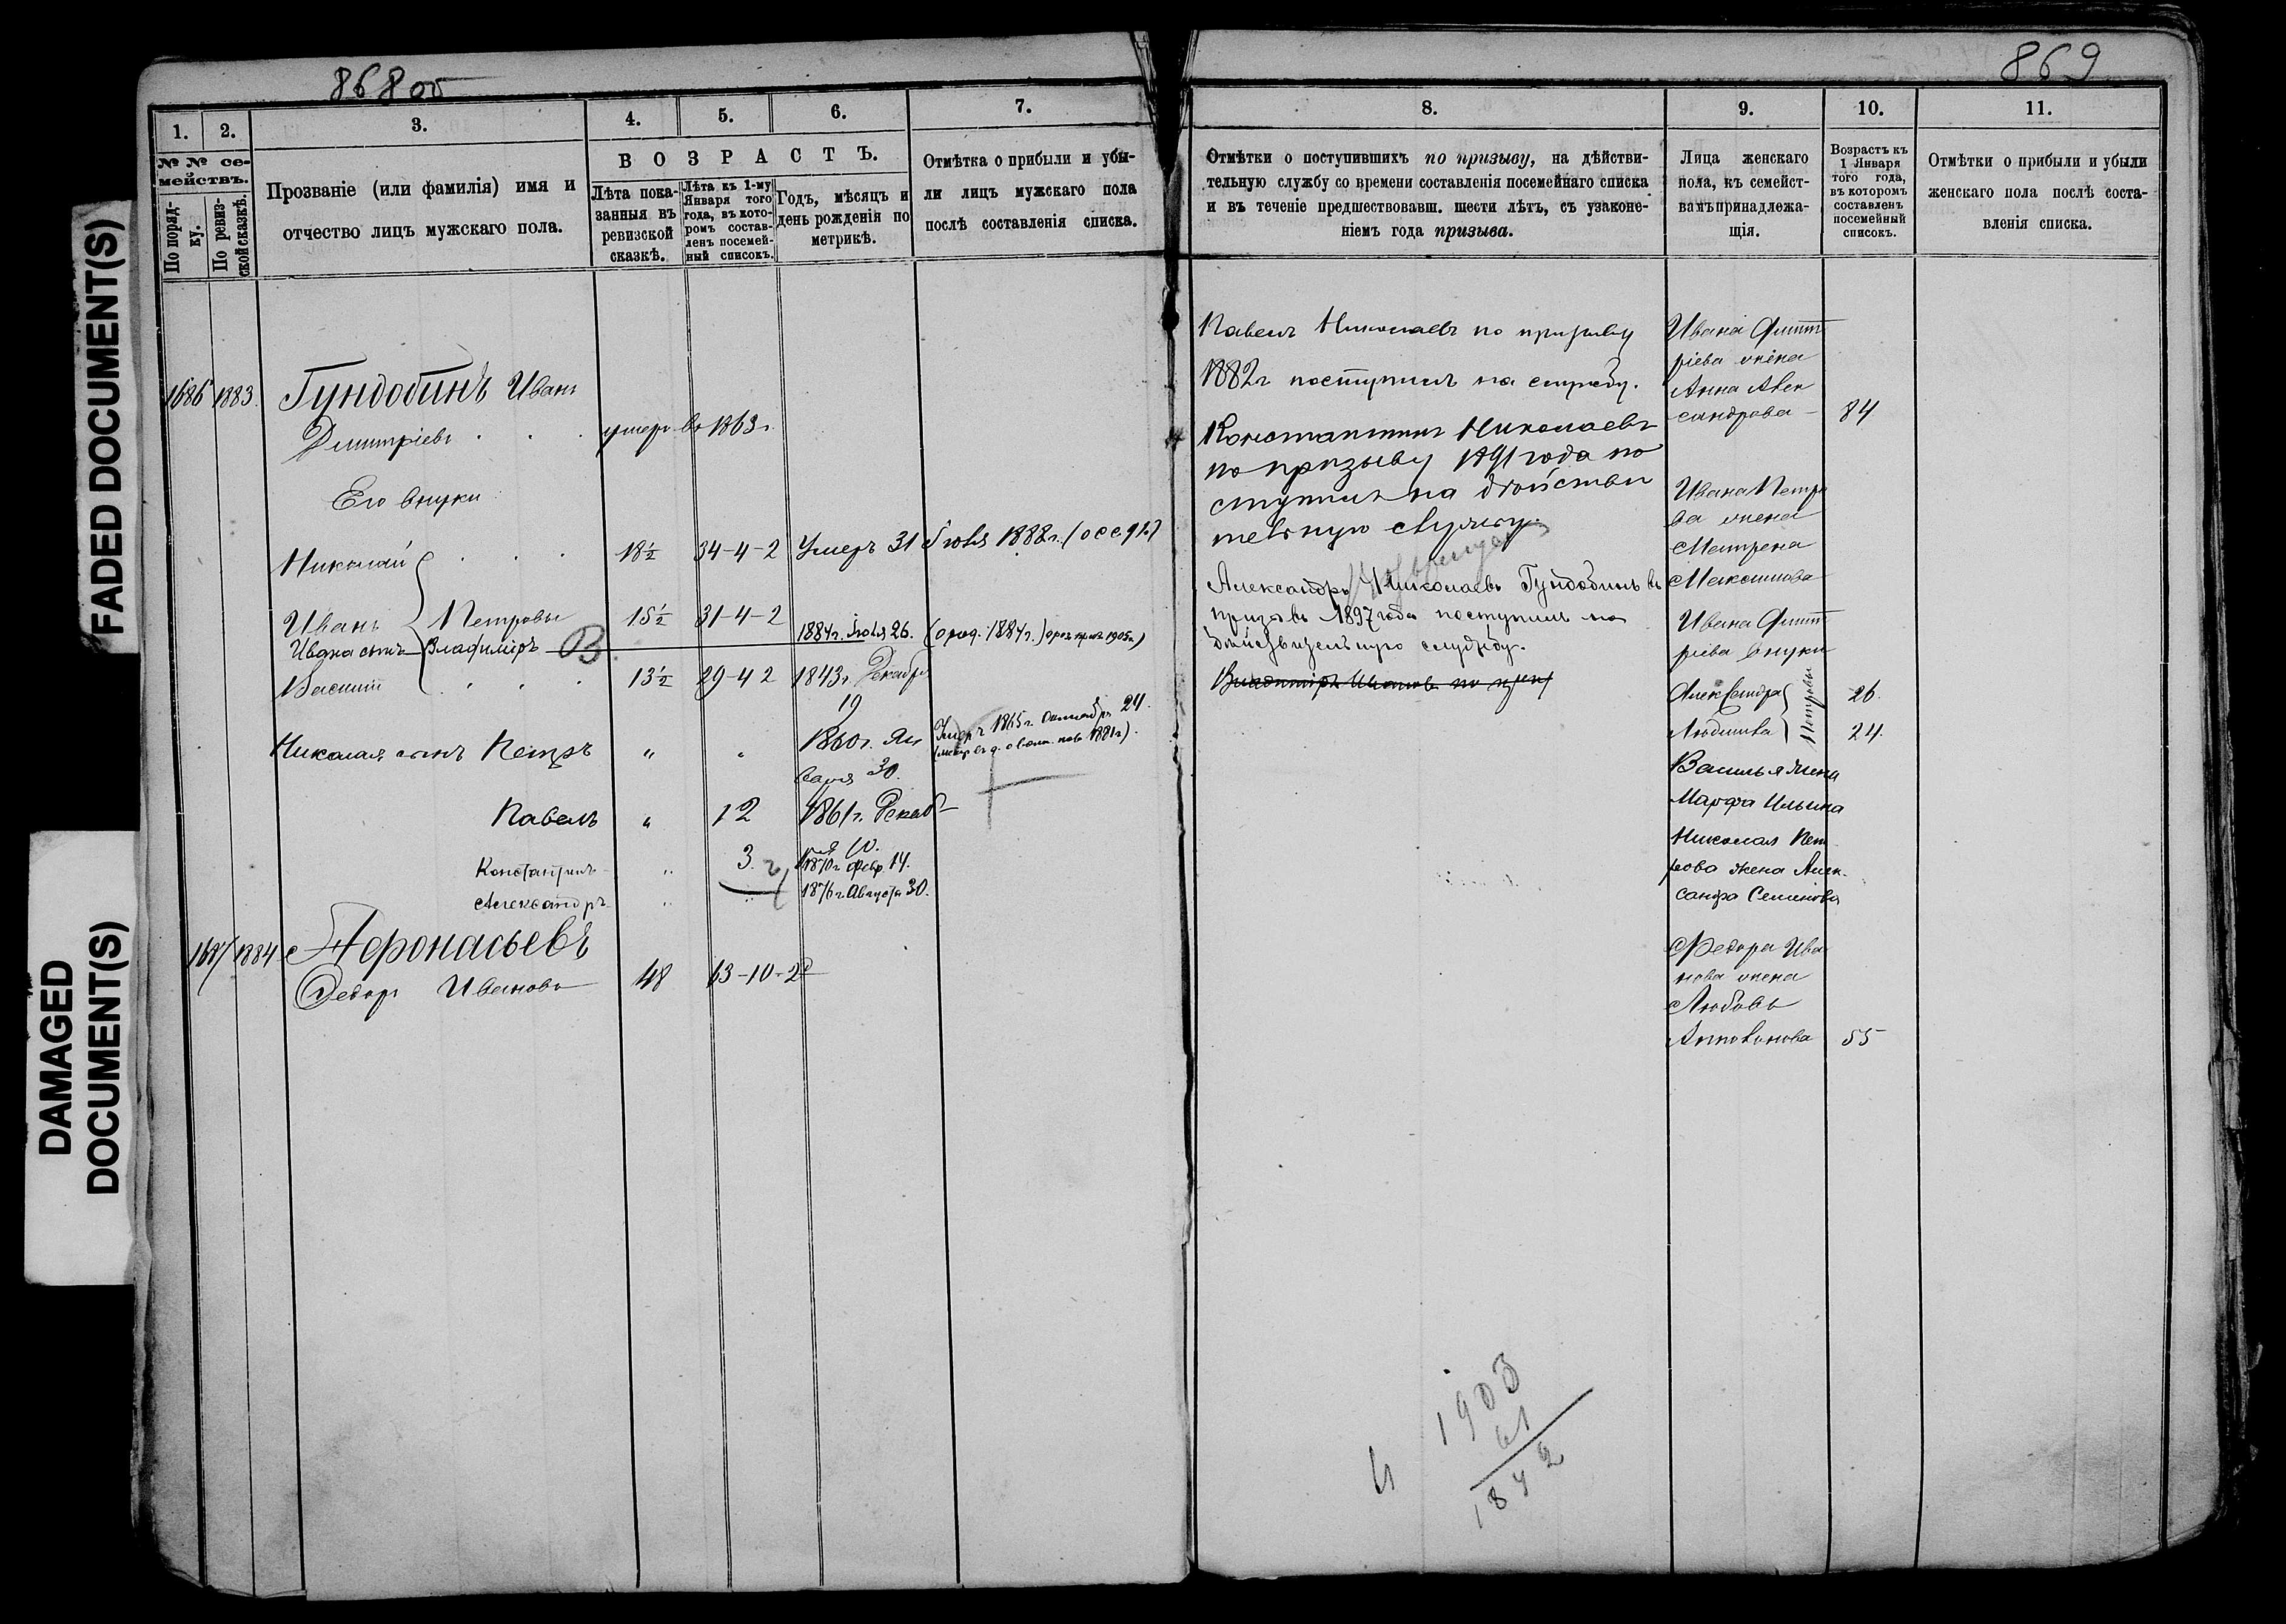 FADED DOCUMENT(S)
DAMAGED
DOCUMENT(S)
868 об
1.
2.
3.
4.
5.
6.
7.
№ № се-
мействъ.
По поряд-
ку.
По ревиз-
ской сказкѣ.
Прозваніе (или фамилія) имя и
отчество лицъ мужскаго пола.
ВОЗРАСТЪ.
Лѣта пока-
занныя въ
ревизской
сказкѣ.
Лѣта къ 1-му
Января того
года, въ кото-
ромъ состав-
ленъ посемей-
ный списокъ.
Годъ, мѣсяцъ и
день рожденія по
метрикѣ.
Отмѣтка о прибыли и убы-
ли лицъ мужскаго пола
послѣ составленія списка.
1686 1883. Гундобинъ Иванъ
Димитріевъ . . . умеръ въ 1863 г.
Его внуки
Николай . . . 18½ 34-4-2 Умеръ 31 Іюля 1888 г.
Иванъ Петровы 15½ 31-4-2
Ивана сынъ Владиміръ В. 1884 г. Іюля 26. (о род. 1884 г.)
Василій . . . 13½ 29-4 2 1843 г. Декабря
19
Николая сынъ Петръ " " 1860 г. Ян
варя 30.
Умеръ 1865 г. Октября 24.
Павелъ " 12 1861 г. Декаб-
ря 10.
Константинъ " 3. 1870 г. Февр. 14.
Александръ " 1876 г. Августа 30.
1687 1884 Афонасьевъ
Федоръ Ивановъ 48 63-10-2
869
8.
9.
10.
11.
Отмѣтки о поступившихъ по призыву, на дѣйстви-
тельную службу со времени составленія посемейнаго списка
и въ теченіе предшествовавш. шести лѣтъ, съ узаконе-
ніемъ года призыва.
Лица женскаго
пола, къ семейст-
вамъ принадлежа-
щія.
Возрастъ къ
1 Января
того года,
въ которомъ
составленъ
посемейный
списокъ.
Отмѣтки о прибыли и убыли
женскаго пола послѣ соста-
вленія списка.
Павелъ Николаевъ по призыву
1882 г. поступилъ на службу.
Константинъ Николаевъ
по призыву 1891 года по
ступилъ на дѣйстви
тельную службу.
Александръ Николаевъ Гундобинъ въ
призывъ 1897 года поступилъ на
дѣйствительную службу.
Владиміръ Ивановъ по
Ивана Димит
ріева жена
Анна Алек
сандрова - 84
Ивана Петро
ва жена
Матрена
Максимова
Ивана Димит
ріева внуки
Александра Петровы 26.
Людмила 24.
Василья жена
Марфа Ильина
Николая Пет
рова жена Алек-
сандра Семенова
Федора Ива
нова жена
Любовь
Антонова 55
1903
61
1842